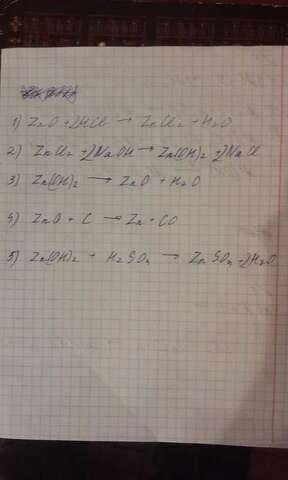 1) ZnO + 2HCl → ZnCl₂ + H₂O
2) ZnCl₂ + 2NaOH → Zn(OH)₂ + 2NaCl
3) Zn(OH)₂ → ZnO + H₂O
4) ZnO + C → Zn + CO
5) Zn(OH)₂ + H₂SO₄ → ZnSO₄ + 2H₂O